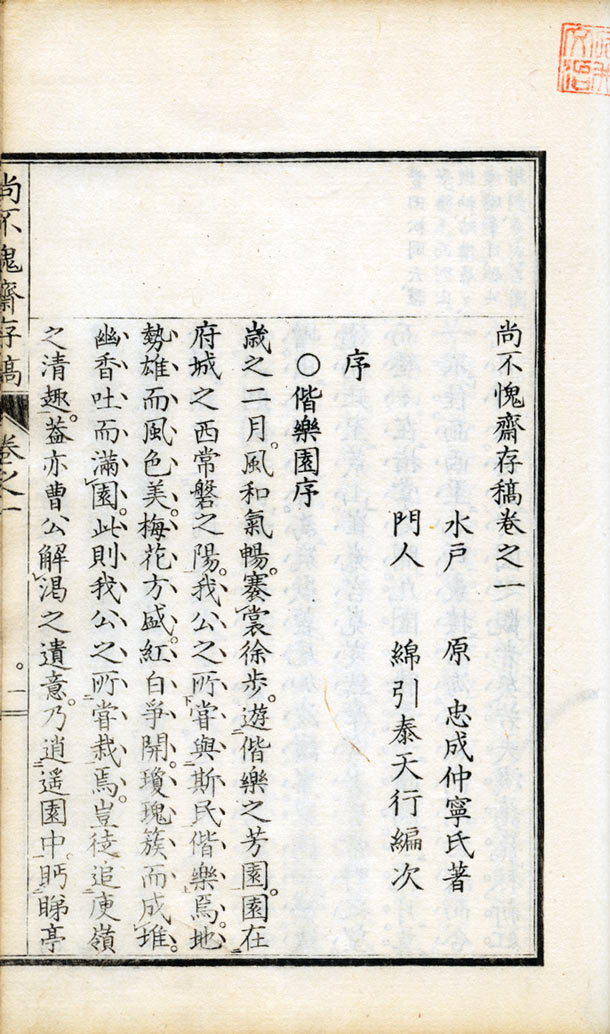 尚不愧齋存稿卷之一
水戶　原　忠成仲寧氏著
門人　綿引泰天行編次
序
○偕樂園序
歲之二月。風和氣暢。褰裳徐步。遊偕樂之芳園。園在
府城之西常磐之陽。我公之所嘗與斯民偕樂焉。地
勢雄而風色美。梅花方盛。紅白爭開。瓊瑰簇而成堆。
幽香吐而滿園。此則我公之所嘗栽焉。豈徒追庾嶺
之清趣。蓋亦曹公解渴之遺意。乃逍遥園中。眄睇亭
尚不愧齋存稿　卷之一　一